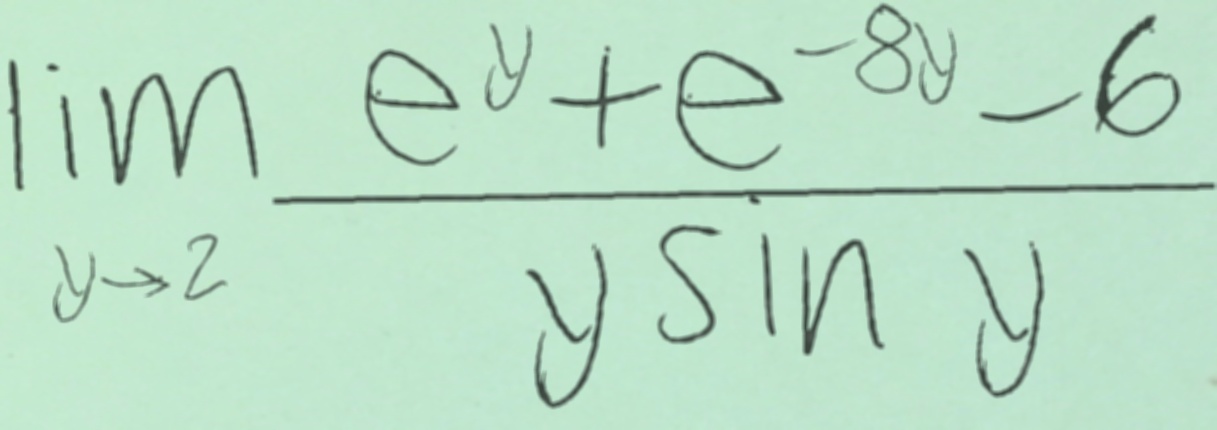 \lim_{y \to 2} \frac{e^y + e^{-8y} - 6}{y \sin y}